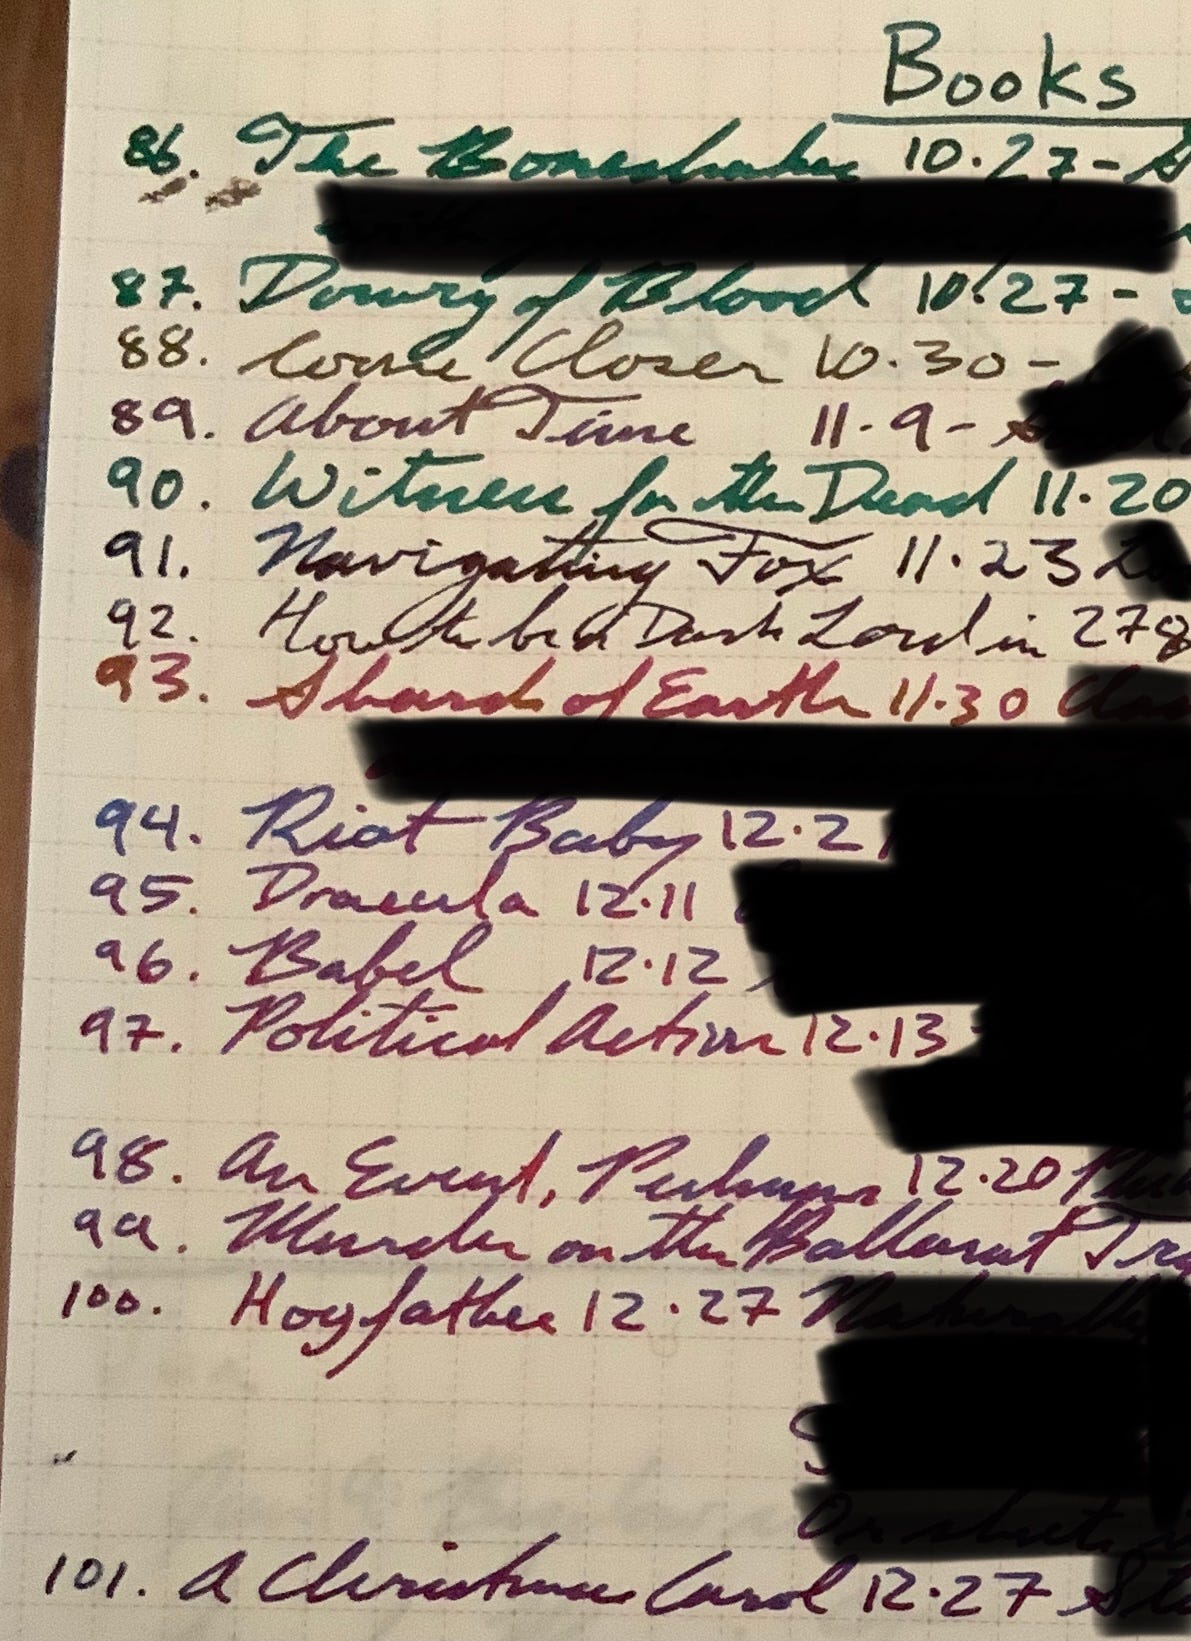 Books
86. The Boneshaker 10.27 -
87. Dowry of Blood 10.27 -
88. Come Closer 10.30 -
89. About Time 11.9 -
90. Witness for the Dead 11.20
91. Navigating Fox 11.23
92. How to be a Dark Lord in 278
93. Shards of Earth 11.30
94. Riot Baby 12.21
95. Dracula 12.11
96. Babel 12.12
97. Political Action 12.13
98. An Event, Perhaps 12.20
99. Murder on the Ballarat
100. Hogfather 12.27 Naturally
101. A Christmas Carol 12.27